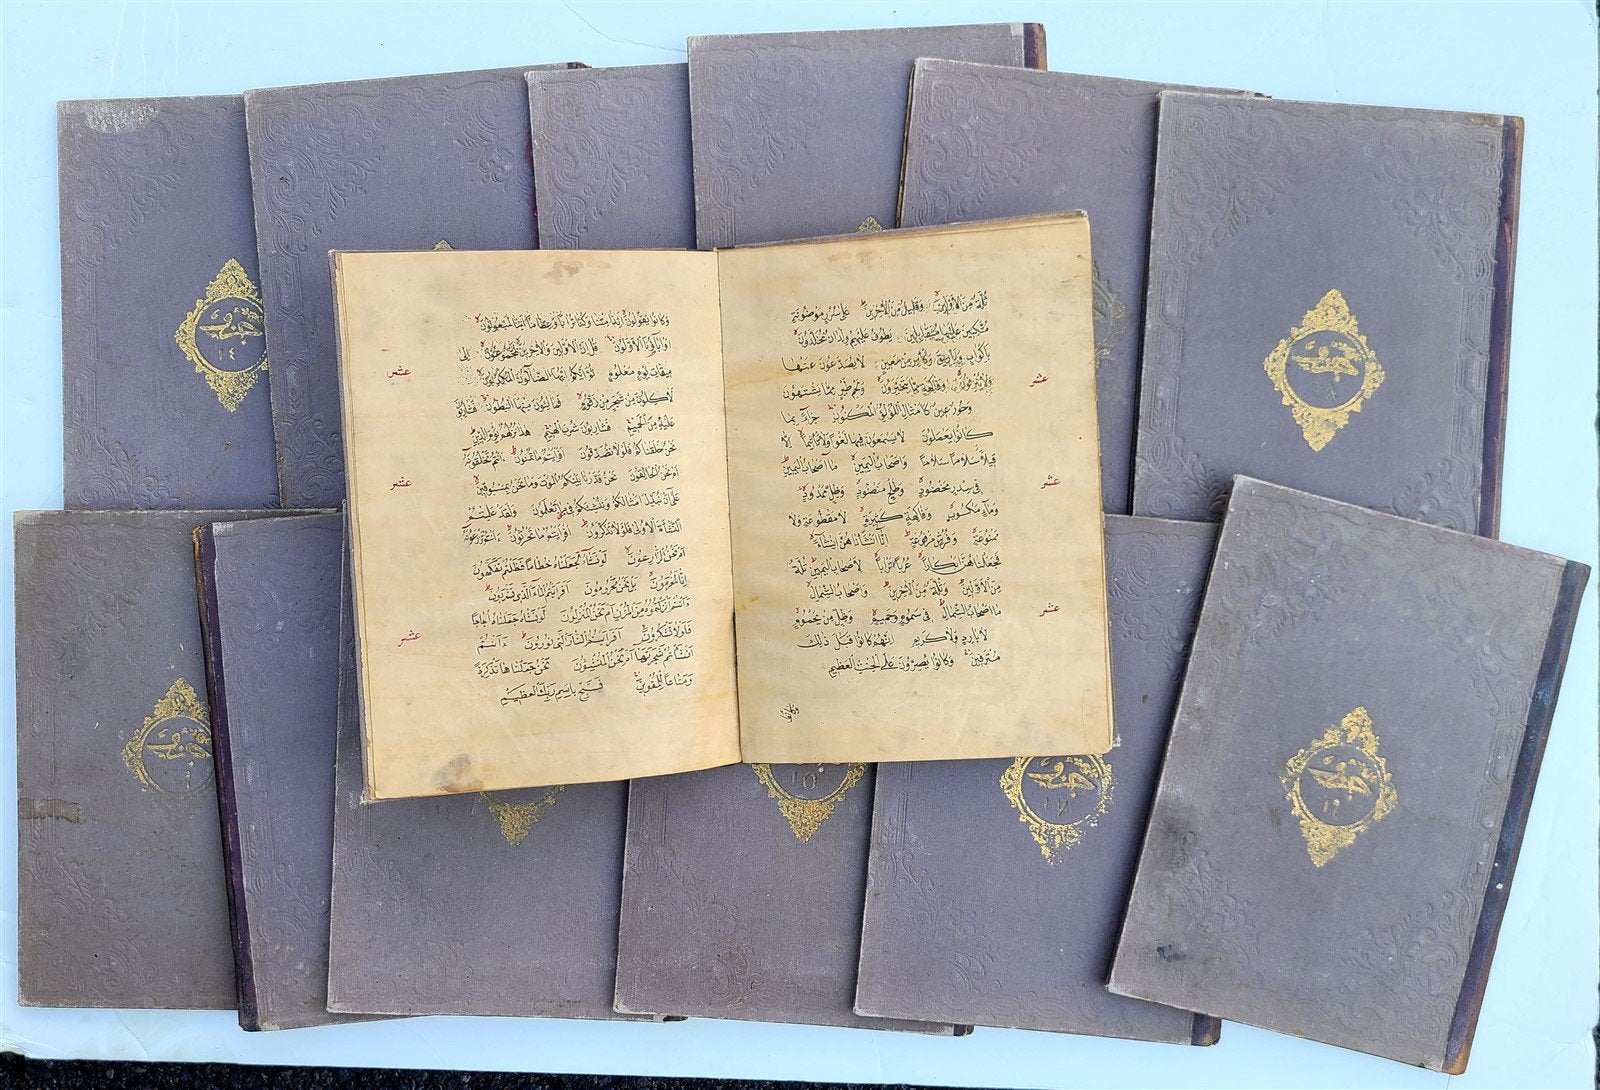 جزو
١٤
جزو
١
ثُلَّةٌ مِنَ الْأَوَّلِينَ وَقَلِيلٌ مِنَ الْآخِرِينَ عَلَى سُرُرٍ مَوْضُونَةٍ
مُتَّكِئِينَ عَلَيْهَا مُتَقَابِلِينَ يَطُوفُ عَلَيْهِمْ وِلْدَانٌ مُخَلَّدُونَ
بِأَكْوَابٍ وَأَبَارِيقَ وَكَأْسٍ مِنْ مَعِينٍ لَا يُصَدَّعُونَ عَنْهَا
وَلَا يُنْزِفُونَ وَفَاكِهَةٍ مِمَّا يَتَخَيَّرُونَ وَلَحْمِ طَيْرٍ مِمَّا يَشْتَهُونَ
عشر
وَحُورٌ عِينٌ كَأَمْثَالِ اللُّؤْلُؤِ الْمَكْنُونِ جَزَاءً بِمَا
كَانُوا يَعْمَلُونَ لَا يَسْمَعُونَ فِيهَا لَغْوًا وَلَا تَأْثِيمًا إِلَّا
قِيلًا سَلَامًا سَلَامًا وَأَصْحَابُ الْيَمِينِ مَا أَصْحَابُ الْيَمِينِ
فِي سِدْرٍ مَخْضُودٍ وَطَلْحٍ مَنْضُودٍ وَظِلٍّ مَمْدُودٍ
عشر
وَمَاءٍ مَسْكُوبٍ وَفَاكِهَةٍ كَثِيرَةٍ لَا مَقْطُوعَةٍ وَلَا
مَمْنُوعَةٍ وَفُرُشٍ مَرْفُوعَةٍ إِنَّا أَنْشَأْنَاهُنَّ إِنْشَاءً
فَجَعَلْنَاهُنَّ أَبْكَارًا عُرُبًا أَتْرَابًا لِأَصْحَابِ الْيَمِينِ ثُلَّةٌ
مِنَ الْأَوَّلِينَ وَثُلَّةٌ مِنَ الْآخِرِينَ وَأَصْحَابُ الشِّمَالِ
مَا أَصْحَابُ الشِّمَالِ فِي سَمُومٍ وَحَمِيمٍ وَظِلٍّ مِنْ يَحْمُومٍ
عشر
لَا بَارِدٍ وَلَا كَرِيمٍ إِنَّهُمْ كَانُوا قَبْلَ ذَلِكَ
مُتْرَفِينَ وَكَانُوا يُصِرُّونَ عَلَى الْحِنْثِ الْعَظِيمِ
وَكَانُوا
وَكَانُوا يَقُولُونَ أَئِذَا مِتْنَا وَكُنَّا تُرَابًا وَعِظَامًا أَئِنَّا لَمَبْعُوثُونَ
أَوَآبَاؤُنَا الْأَوَّلُونَ قُلْ إِنَّ الْأَوَّلِينَ وَالْآخِرِينَ لَمَجْمُوعُونَ إِلَى
مِيقَاتِ يَوْمٍ مَعْلُومٍ ثُمَّ إِنَّكُمْ أَيُّهَا الضَّالُّونَ الْمُكَذِّبُونَ
عشر
لَآكِلُونَ مِنْ شَجَرٍ مِنْ زَقُّومٍ فَمَالِئُونَ مِنْهَا الْبُطُونَ فَشَارِبُونَ
عَلَيْهِ مِنَ الْحَمِيمِ فَشَارِبُونَ شُرْبَ الْهِيمِ هَذَا نُزُلُهُمْ يَوْمَ الدِّينِ
نَحْنُ خَلَقْنَاكُمْ فَلَوْلَا تُصَدِّقُونَ أَفَرَأَيْتُمْ مَا تُمْنُونَ ءَأَنْتُمْ تَخْلُقُونَهُ
أَمْ نَحْنُ الْخَالِقُونَ نَحْنُ قَدَّرْنَا بَيْنَكُمُ الْمَوْتَ وَمَا نَحْنُ بِمَسْبُوقِينَ
عشر
عَلَى أَنْ نُبَدِّلَ أَمْثَالَكُمْ وَنُنْشِئَكُمْ فِيمَا لَا تَعْلَمُونَ وَلَقَدْ عَلِمْتُمُ
النَّشْأَةَ الْأُولَى فَلَوْلَا تَذَكَّرُونَ أَفَرَأَيْتُمْ مَا تَحْرُثُونَ ءَأَنْتُمْ تَزْرَعُونَهُ
أَمْ نَحْنُ الزَّارِعُونَ لَوْ نَشَاءُ لَجَعَلْنَاهُ حُطَامًا فَظَلْتُمْ تَفَكَّهُونَ
إِنَّا لَمُغْرَمُونَ بَلْ نَحْنُ مَحْرُومُونَ أَفَرَأَيْتُمُ الْمَاءَ الَّذِي تَشْرَبُونَ
ءَأَنْتُمْ أَنْزَلْتُمُوهُ مِنَ الْمُزْنِ أَمْ نَحْنُ الْمُنْزِلُونَ لَوْ نَشَاءُ جَعَلْنَاهُ أُجَاجًا
فَلَوْلَا تَشْكُرُونَ أَفَرَأَيْتُمُ النَّارَ الَّتِي تُورُونَ ءَأَنْتُمْ
عشر
أَنْشَأْتُمْ شَجَرَتَهَا أَمْ نَحْنُ الْمُنْشِؤُنَ نَحْنُ جَعَلْنَاهَا تَذْكِرَةً
وَمَتَاعًا لِلْمُقْوِينَ فَسَبِّحْ بِاسْمِ رَبِّكَ الْعَظِيمِ
جزو
١٥
جزو
١٧
جزو
١٠